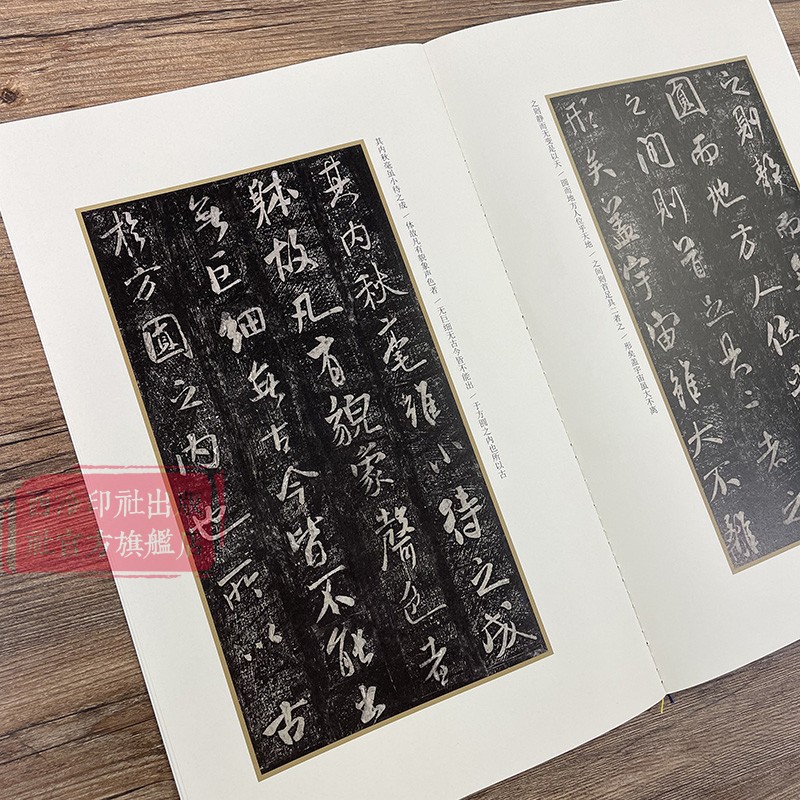 之則静而
圓而地方人位乎
之間則首足具二者之
形矣蓋宇宙雖大不離
之则静而无变是以天 / 圆而地方人位乎天地 / 之间则首足具二者之 / 形矣盖宇宙虽大不离
其内秋毫虽小待之成 / 体故凡有貌象声色者 / 无巨细无古今皆不能出 / 于方圆之内也所以古
其内秋毫雖小待之成
躰故凡有貌象聲色者
無巨細無古今皆不能出
於方圓之内也所以古
西泠印社出
社官方旗艦